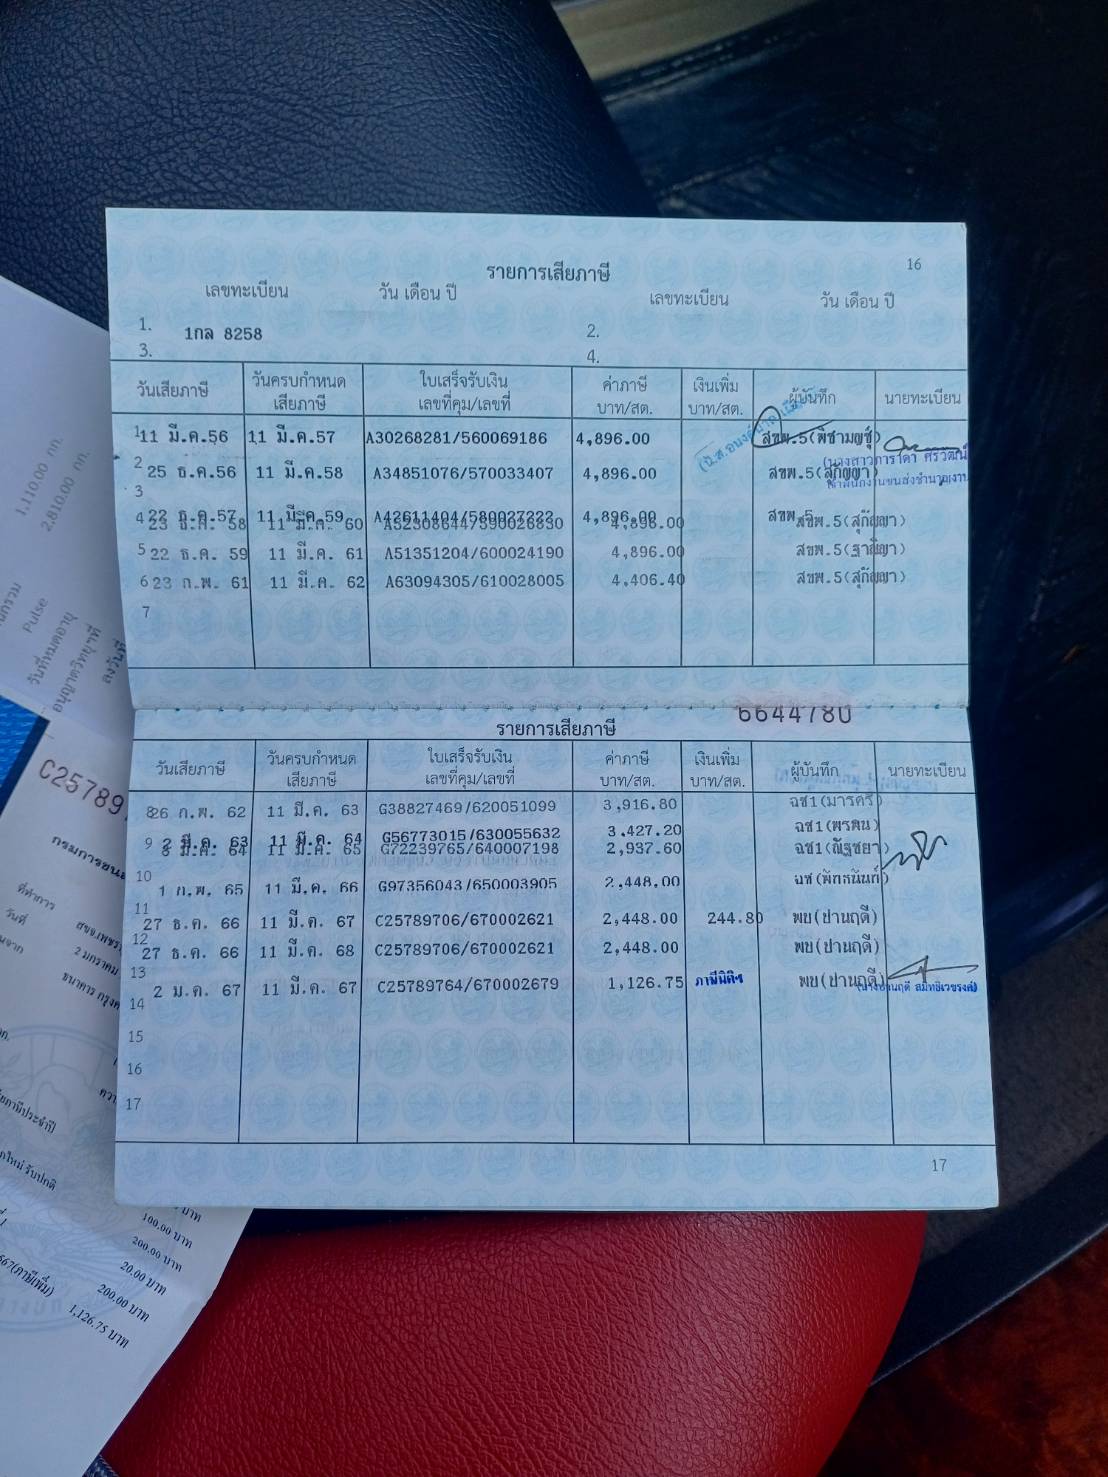 รายการเสียภาษี
16
เลขทะเบียน วัน เดือน ปี เลขทะเบียน วัน เดือน ปี
1. 1กล 8258 2.
3. 4.
วันเสียภาษี วันครบกำหนดเสียภาษี ใบเสร็จรับเงิน เลขที่คุม/เลขที่ ค่าภาษี บาท/สต. เงินเพิ่ม บาท/สต. ผู้บันทึก นายทะเบียน
1 11 มี.ค.56 11 มี.ค.57 A30268281/560069186 4,896.00 สขพ.5(พิชามญชุ์)
2 25 ธ.ค.56 11 มี.ค.58 A34851076/570033407 4,896.00 สขพ.5(สุกัญญา)
3
4 22 ธ.ค.57 11 มี.ค.59 A42611404/580027222 4,896.00 สขพ.5
23 ธ.ค. 58 11 มี.ค. 60 4,896.00 สขพ.5(สุกัญญา)
5 22 ธ.ค. 59 11 มี.ค. 61 A51351204/600024190 4,896.00 สขพ.5(ฐาณิญา)
6 23 ก.พ. 61 11 มี.ค. 62 A63094305/610028005 4,406.40 สขพ.5(สุกัญญา)
7
6644780
รายการเสียภาษี
วันเสียภาษี วันครบกำหนดเสียภาษี ใบเสร็จรับเงิน เลขที่คุม/เลขที่ ค่าภาษี บาท/สต. เงินเพิ่ม บาท/สต. ผู้บันทึก นายทะเบียน
8 26 ก.พ. 62 11 มี.ค. 63 G38827469/620051099 3,916.80 ฉช1(มารศรี)
9 2 มี.ค. 63 11 มี.ค. 64 G56773015/630055632 3,427.20 ฉช1(พรติน)
8 มี.ค. 64 11 มี.ค. 65 G72239765/640007198 2,937.60 ฉช1(ณัฐชยา)
10
1 ก.พ. 65 11 มี.ค. 66 G97356043/650003905 2,448.00 ฉช(พักทนันท์)
11
27 ธ.ค. 66 11 มี.ค. 67 C25789706/670002621 2,448.00 244.80 พบ(ปานฤดี)
12
27 ธ.ค. 66 11 มี.ค. 68 C25789706/670002621 2,448.00 พบ(ปานฤดี)
13
2 ม.ค. 67 11 มี.ค. 67 C25789764/670002679 1,126.75 ภาษีนิติฯ พบ(ปานฤดี)
14
15
16
17
17
1,110.00 กก.
2,810.00 กก.
Pulse
วันที่หมดอายุ
C25789
กรมการขนส
ที่ทำการ
วันที่ 2 มกราคม
ธนาคาร กรุง
100.00 บาท
200.00 บาท
20.00 บาท
200.00 บาท
1,126.75 บาท